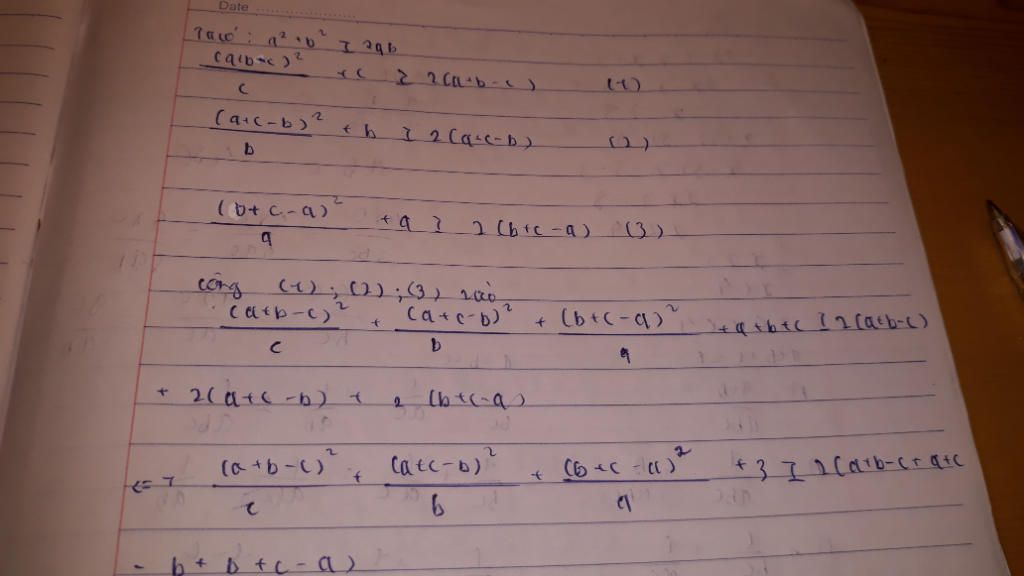 Date
Ta có: a² + b² ≥ 2ab
(a+b-c)²/c + c ≥ 2(a+b-c) (1)
(a+c-b)²/b + b ≥ 2(a+c-b) (2)
(b+c-a)²/a + a ≥ 2(b+c-a) (3)
cộng (1); (2); (3) ta có
(a+b-c)²/c + (a+c-b)²/b + (b+c-a)²/a + a+b+c ≥ 2(a+b-c)
+ 2(a+c-b) + 2(b+c-a)
<=> (a+b-c)²/c + (a+c-b)²/b + (b+c-a)²/a + 3 ≥ 2(a+b-c+a+c
- b + b + c - a)